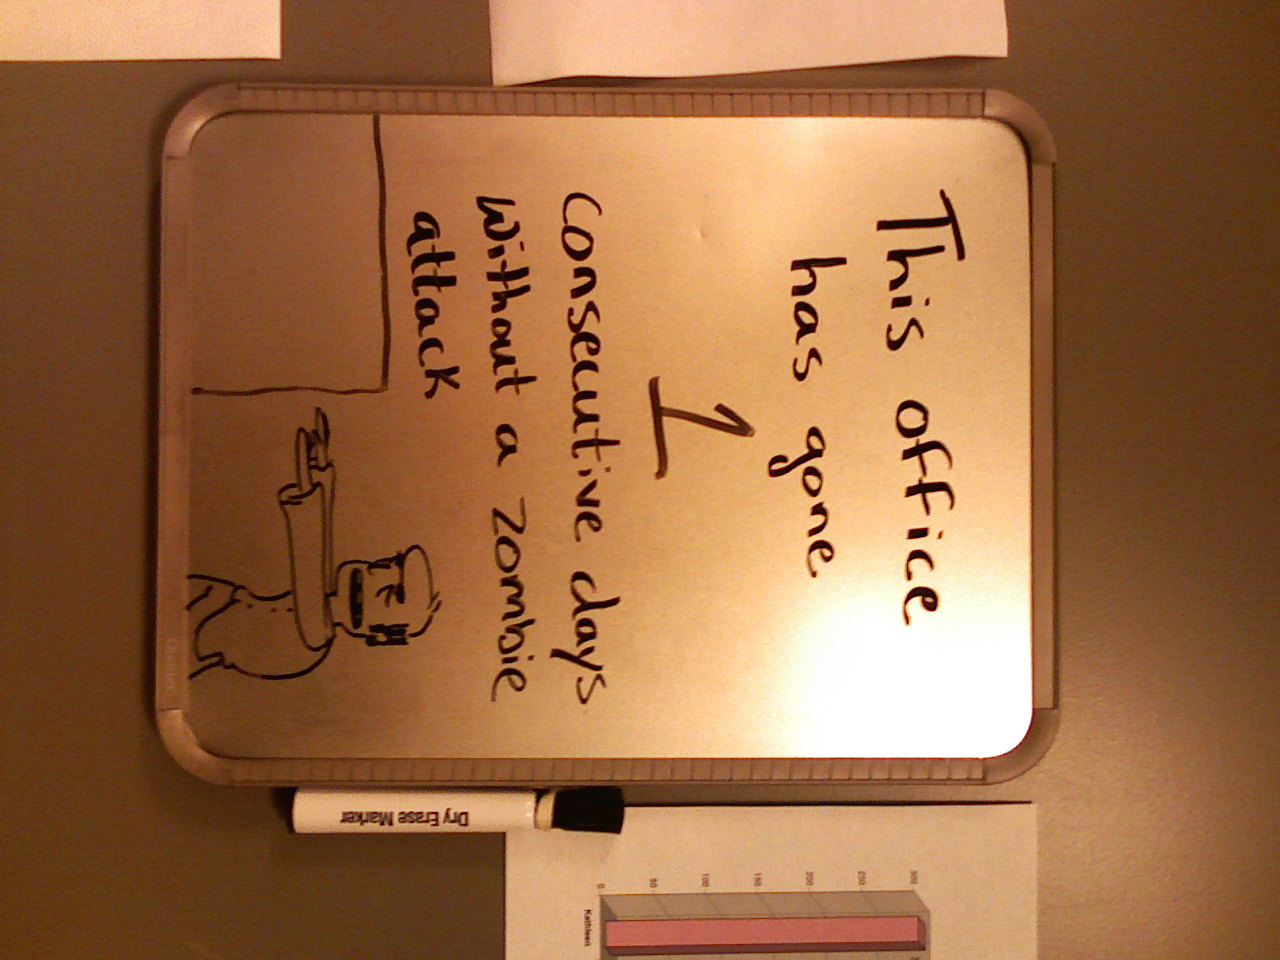 This office
has gone
1
Consecutive days
without a zombie
attack
Dry Erase Marker
0
50
100
150
200
250
300
Kathleen